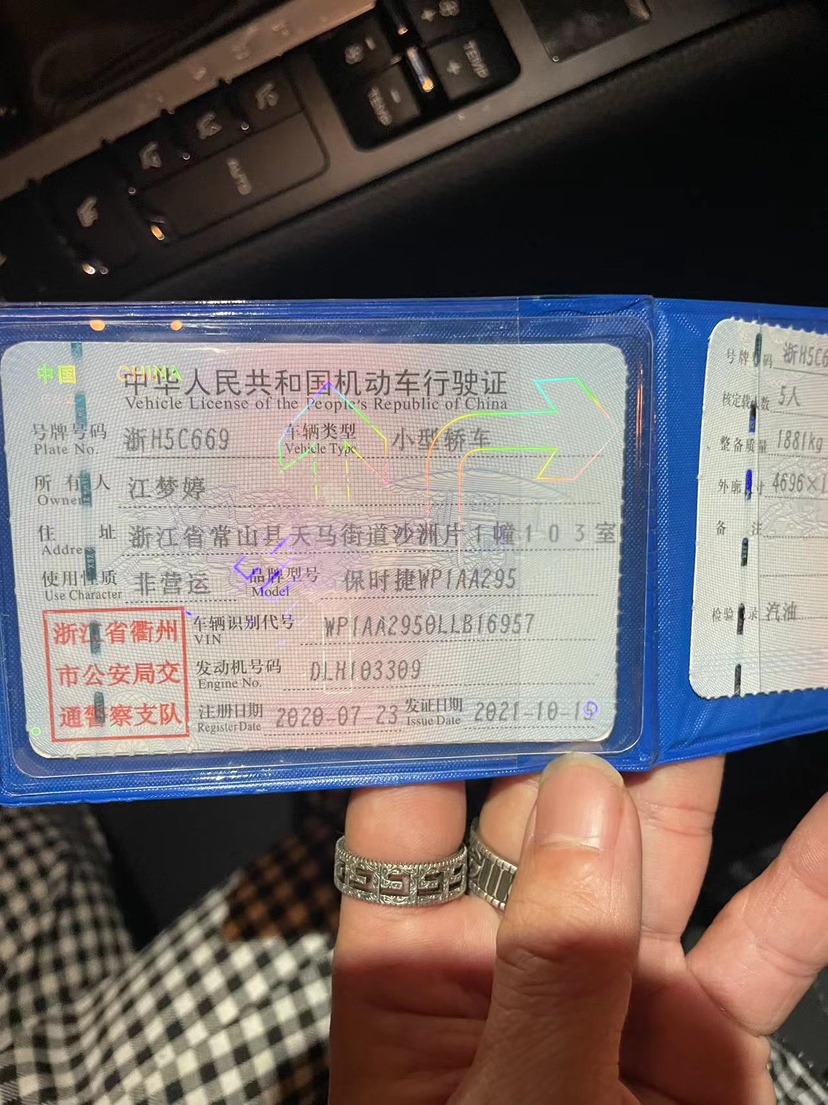 TEMP
TEMP
AUTO
中国 CHINA
中华人民共和国机动车行驶证
Vehicle License of the People's Republic of China
号牌号码 浙H5C669 车辆类型 小型轿车
Plate No. Vehicle Type
所有人 江梦婷
Owner
住址 浙江省常山县天马街道沙洲片1幢103室
Address
使用性质 非营运 品牌型号 保时捷WP1AA295
Use Character Model
浙江省衢州
市公安局交
通警察支队
车辆识别代号 WP1AA2950LLB16957
VIN
发动机号码 DLH103309
Engine No.
注册日期 2020-07-23 发证日期 2021-10-15
Register Date Issue Date
号牌号码 浙H5C6
核定载人数 5人
整备质量 1881kg
外廓尺寸 4696×1
备注
检验记录 汽油